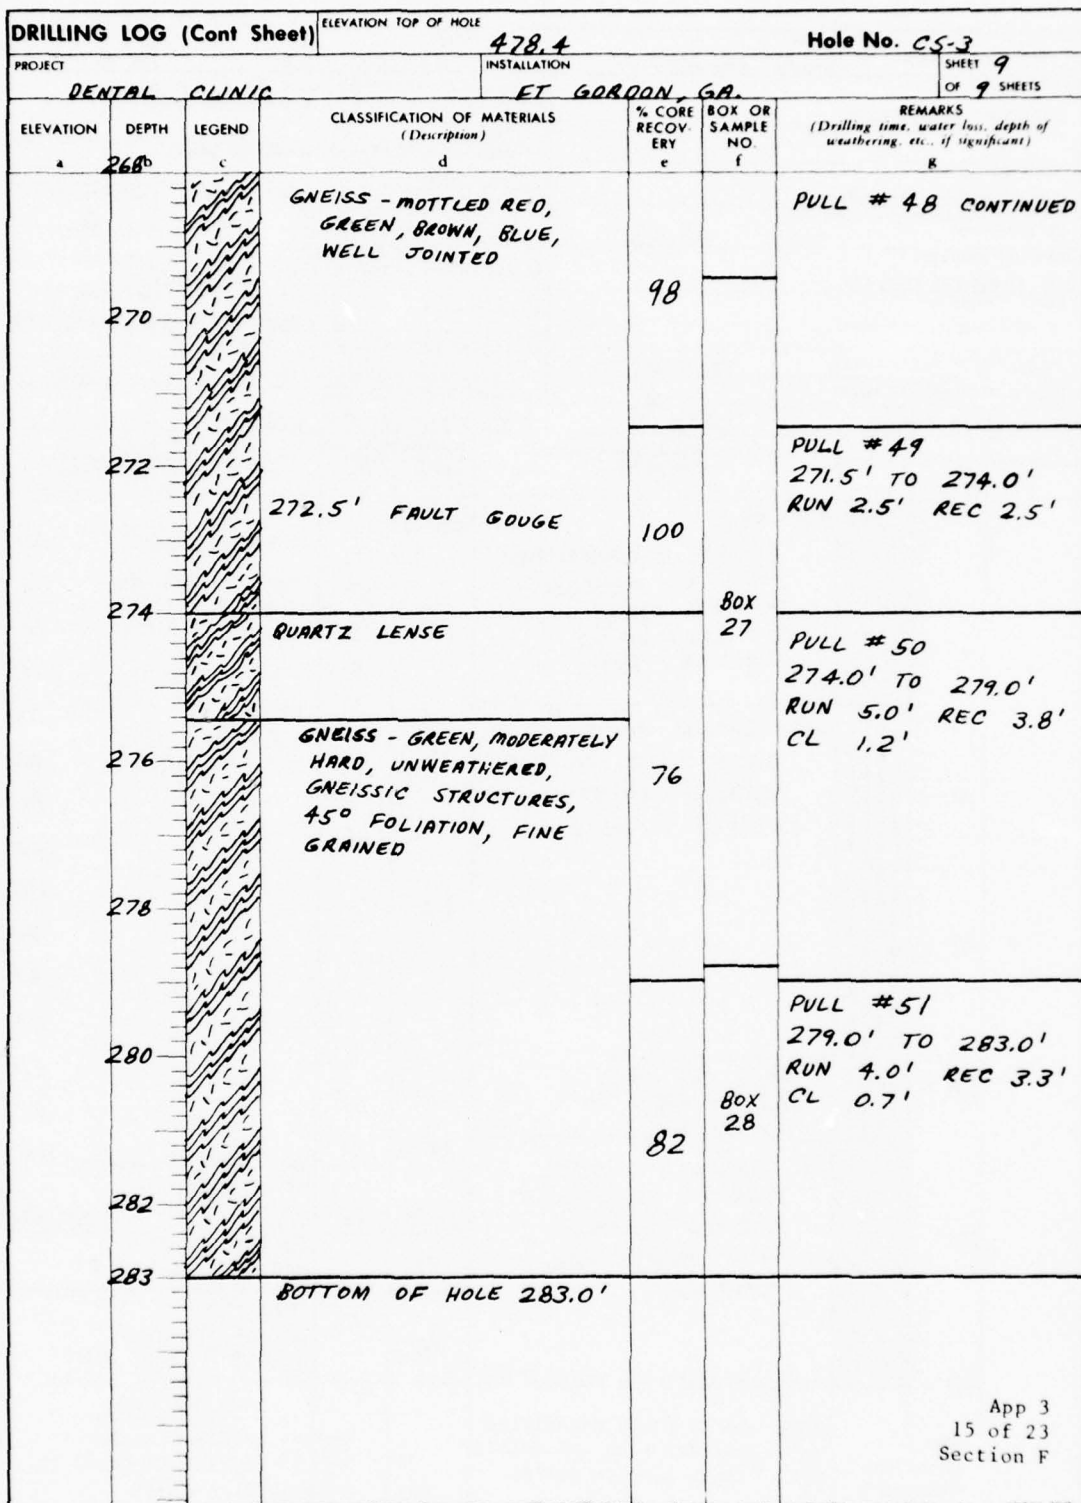 DRILLING LOG (Cont Sheet)
ELEVATION TOP OF HOLE
478.4
Hole No. CS-3
PROJECT
DENTAL CLINIC
INSTALLATION
FT GORDON, GA.
SHEET 9
OF 9 SHEETS
ELEVATION
a
DEPTH
b
LEGEND
c
CLASSIFICATION OF MATERIALS
(Description)
d
% CORE
RECOV-
ERY
e
BOX OR
SAMPLE
NO.
f
REMARKS
(Drilling time, water loss, depth of
weathering, etc., if significant)
g
268
GNEISS - MOTTLED RED,
GREEN, BROWN, BLUE,
WELL JOINTED
98
PULL # 48 CONTINUED
270
272
272.5' FAULT GOUGE
100
PULL #49
271.5' TO 274.0'
RUN 2.5' REC 2.5'
274
QUARTZ LENSE
BOX
27
PULL # 50
274.0' TO 279.0'
RUN 5.0' REC 3.8'
CL 1.2'
276
GNEISS - GREEN, MODERATELY
HARD, UNWEATHERED,
GNEISSIC STRUCTURES,
45° FOLIATION, FINE
GRAINED
76
278
280
PULL #51
279.0' TO 283.0'
RUN 4.0' REC 3.3'
CL 0.7'
BOX
28
82
282
283
BOTTOM OF HOLE 283.0'
App 3
15 of 23
Section F